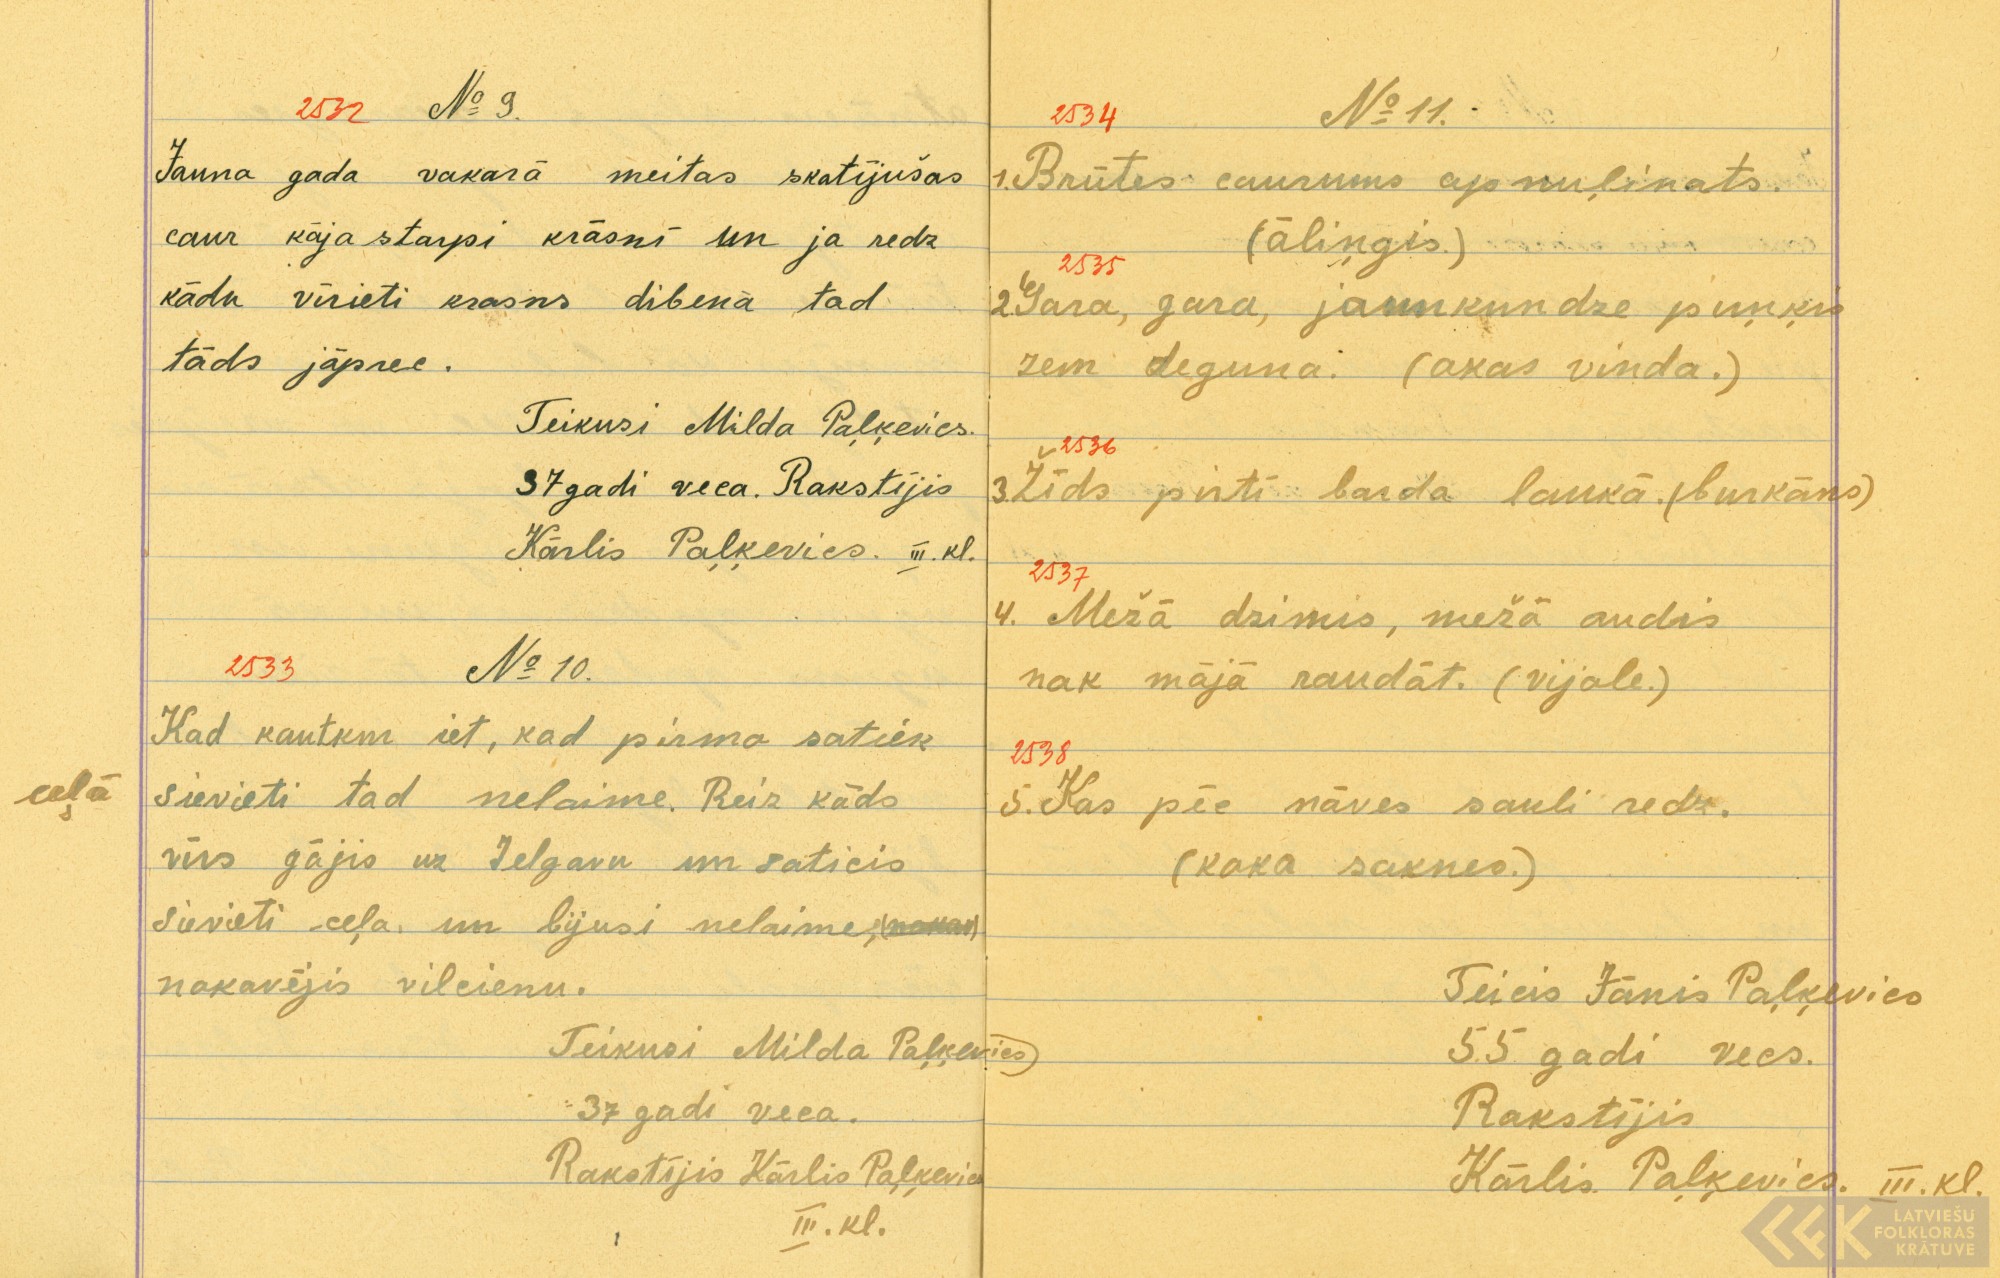 2532 № 9.
Jauna gada vakarā meitas skatījušas
caur kāja starpi krāsnī un ja redz
kādu vīrieti krasns dibenā tad
tāds jāprec.
Teikusi Milda Paļķevics.
37 gadi veca. Rakstījis
Kārlis Paļķevics. III. kl.
2533 № 10.
Kad kautkur iet, kad pirmo satiek
ceļā sievieti tad nelaime. Reiz kāds
vīrs gājis uz Jelgavu un saticis
sievieti ceļa. un bijusi nelaime,
nokavējis vilcienu.
Teikusi Milda Paļķevics
37 gadi veca.
Rakstījis Kārlis Paļķevics
III. kl.
2534 № 11.
1. Brūtes caurums apņuļināts.
(āliņgis.)
2535
2. Gara, gara, jaunkundze puņķis
zem deguna. (akas vinda.)
2536
3. Žīds pirtī barda laukā. (burkāns)
2537
4. Mežā dzimis, mežā audis
nak mājā raudāt. (vijole.)
2538
5. Kas pēc nāves sauli redz.
(koka saknes.)
Teicis Jānis Paļķevics
55 gadi vecs.
Rakstījis
Kārlis Paļķevics. III. kl.
LATVIEŠU
FOLKLORAS
KRĀTUVE